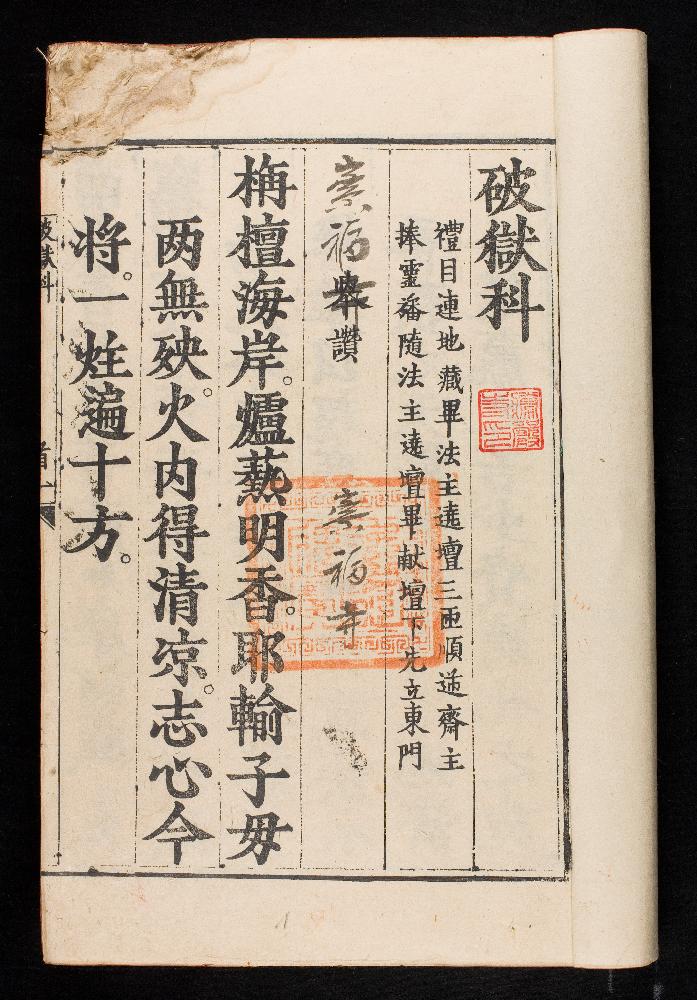 破獄科
禮目連地藏畢法主遶壇三匝順遊齋主
捧靈旛隨法主遶壇畢献壇下先立東門
崇福寺
舉讚
崇福寺
栴檀海岸。爐爇明香。耶輸子毋
两無殃。火内得清凉。志心今
将。一炷遍十方。
破獄科
首一